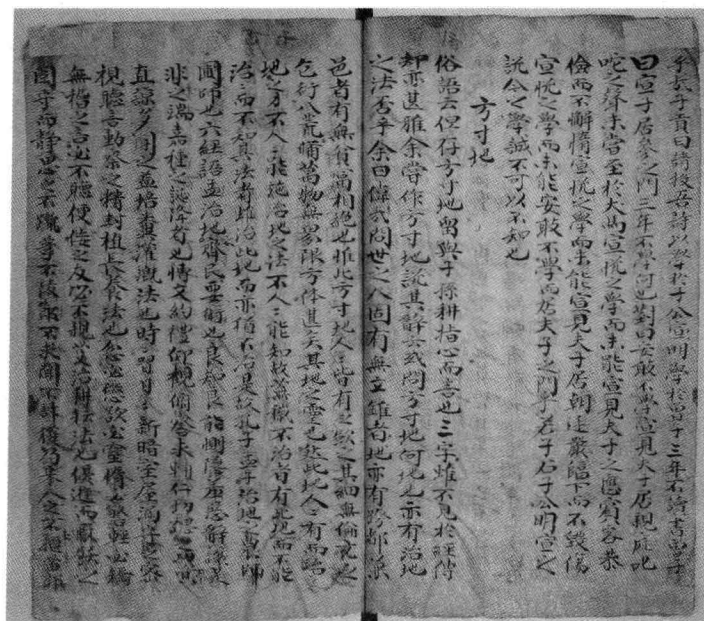 曰請投吾詩以學於子公宣明學於曾子三年不讀書曾子
曰宣子居參之門三年不學何也對曰安敢不學宣見夫子居親庭叱
咤之聲未嘗至於犬馬宣悅之學而未能宣見夫子之應賓客恭
儉而不懈惰宣悅之學而未能宣見夫子居朝廷嚴臨下而不毀傷
宣悅之學而未能安敢不學而居夫子之門乎若子石子公明宣之
說今之學誠不可以不知也
方寸地
俗語云但存方寸地留與子孫耕指心而言也三字雖不見於經傳
却亦甚雅余嘗作方寸地說其辭云或問方寸地何地也亦有治地
之法否乎余曰偉哉問世之人固有無立錐者地亦有跨都兼
邑者有無貧富相絕也惟此方寸地人人皆有之斂之其細無倫充之
包行八荒備萬物無界限方體甚矣其地之靈也然此地人人有而
地之方不人人能施治地之法不人人能知故蕪穢不治者有此地而不能
治治而不知其法者雖治此地而亦猶不治是故孔子孟子治地之農師
圃也六經語孟治地齊民要術也良知良能惻隱羞惡辭讓是
非之端嘉種之誕降者也博文約禮仰觀俯察求輔仁
直諒多聞之益培壅灌溉法也時習日新暗室屋漏守之密
視聽言動察之精封植長養法也忿必懲慾必窒惰必警輕必矯
無稽之言必不聽便佞之友必不親芟治耕耘法也優游而厭飫之
固守而靜思之不躐等不陵節不